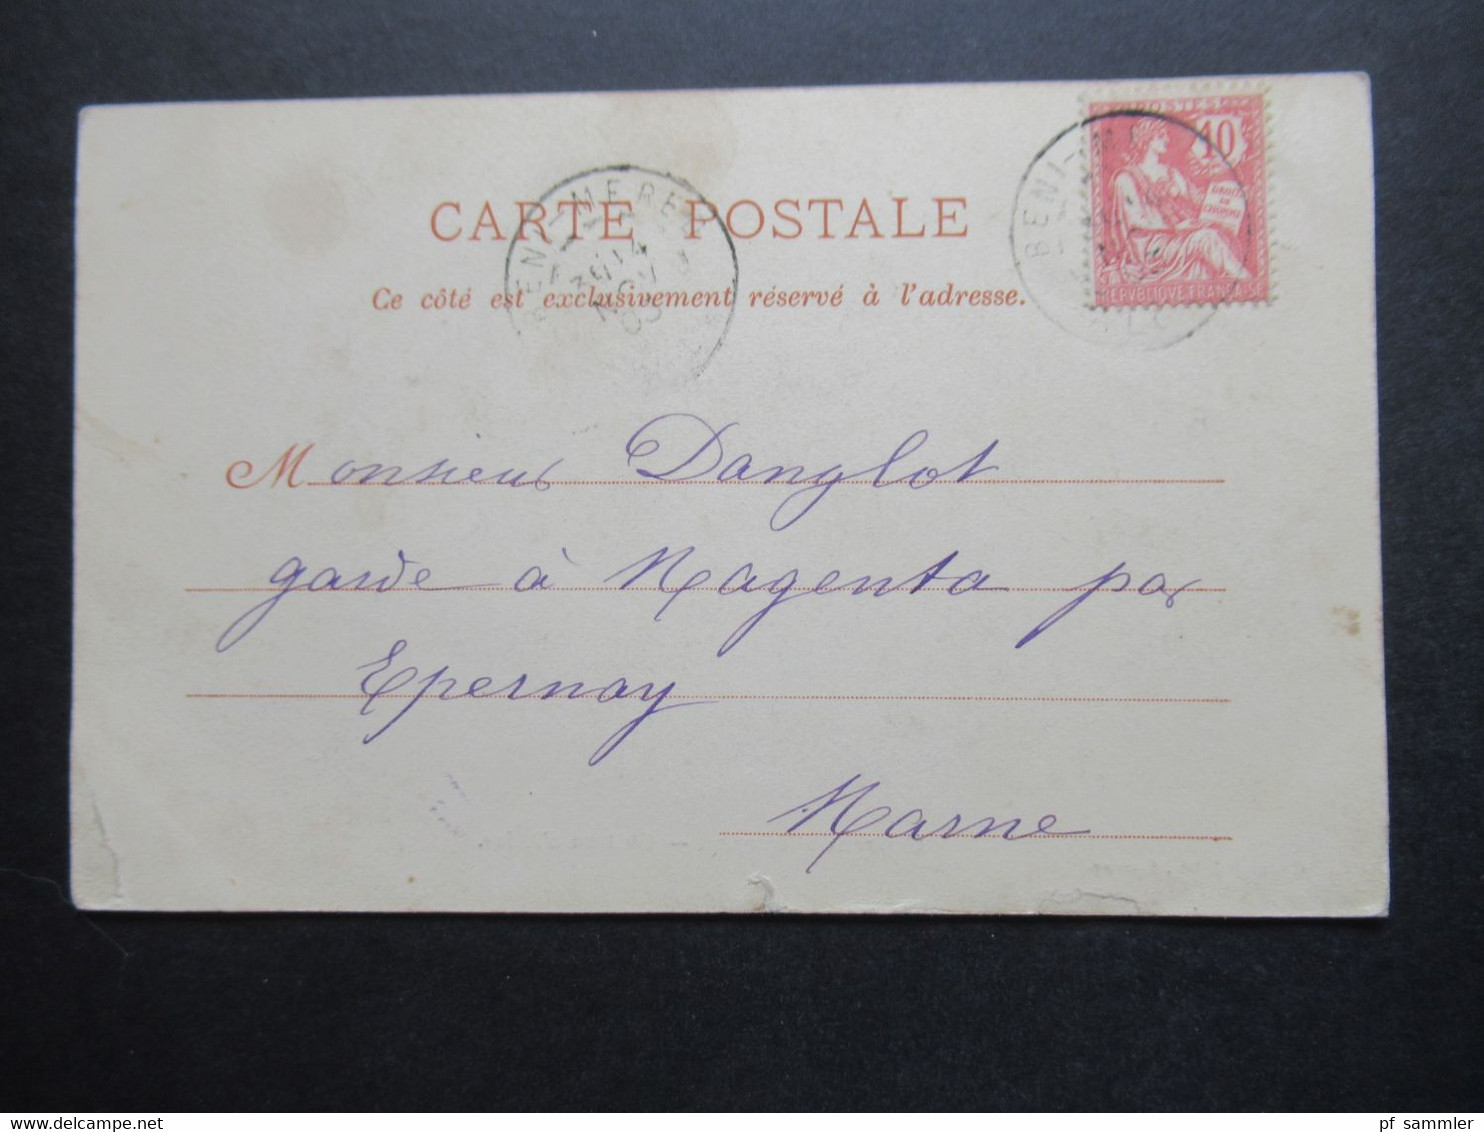 POSTES
10
DROITS DE L'HOMME
REPVBLIQVE FRANÇAISE
BENI-
BENI-MERED
14
NOV
03
CARTE POSTALE
Ce côté est exclusivement réservé à l'adresse.
Monsieur Danglot
garde à Magenta par
Epernay
Marne
www.delcampe.net
pf_sammler